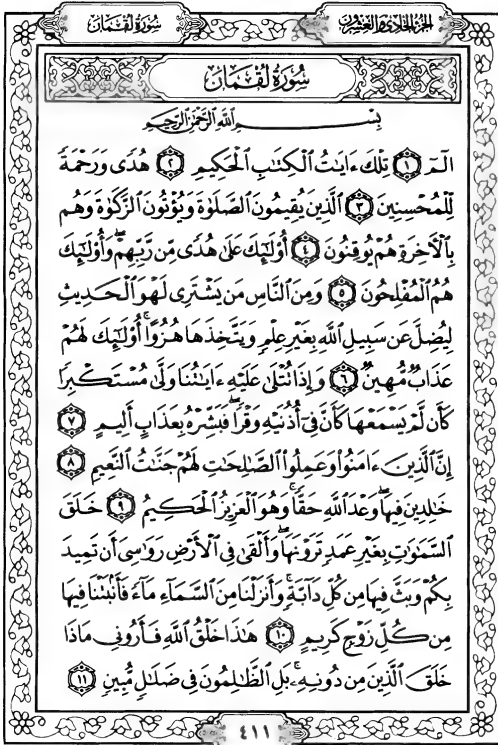 الجزء الحادي والعشرون
سورة لقمان
سورة لقمان
بسم الله الرحمن الرحيم
الٓمٓ ١ تِلْكَ ءَايَٰتُ ٱلْكِتَٰبِ ٱلْحَكِيمِ ٢ هُدًى وَرَحْمَةً
لِّلْمُحْسِنِينَ ٣ ٱلَّذِينَ يُقِيمُونَ ٱلصَّلَوٰةَ وَيُؤْتُونَ ٱلزَّكَوٰةَ وَهُم
بِٱلْءَاخِرَةِ هُمْ يُوقِنُونَ ٤ أُو۟لَٰٓئِكَ عَلَىٰ هُدًى مِّن رَّبِّهِمْ ۖ وَأُو۟لَٰٓئِكَ
هُمُ ٱلْمُفْلِحُونَ ٥ وَمِنَ ٱلنَّاسِ مَن يَشْتَرِى لَهْوَ ٱلْحَدِيثِ
لِيُضِلَّ عَن سَبِيلِ ٱللَّهِ بِغَيْرِ عِلْمٍ وَيَتَّخِذَهَا هُزُوًا ۚ أُو۟لَٰٓئِكَ لَهُمْ
عَذَابٌ مُّهِينٌ ٦ وَإِذَا تُتْلَىٰ عَلَيْهِ ءَايَٰتُنَا وَلَّىٰ مُسْتَكْبِرًا
كَأَن لَّمْ يَسْمَعْهَا كَأَنَّ فِىٓ أُذُنَيْهِ وَقْرًا ۖ فَبَشِّرْهُ بِعَذَابٍ أَلِيمٍ ٧
إِنَّ ٱلَّذِينَ ءَامَنُوا۟ وَعَمِلُوا۟ ٱلصَّٰلِحَٰتِ لَهُمْ جَنَّٰتُ ٱلنَّعِيمِ ٨
خَٰلِدِينَ فِيهَا ۖ وَعْدَ ٱللَّهِ حَقًّا ۚ وَهُوَ ٱلْعَزِيزُ ٱلْحَكِيمُ ٩ خَلَقَ
ٱلسَّمَٰوَٰتِ بِغَيْرِ عَمَدٍ تَرَوْنَهَا ۖ وَأَلْقَىٰ فِى ٱلْأَرْضِ رَوَٰسِىَ أَن تَمِيدَ
بِكُمْ وَبَثَّ فِيهَا مِن كُلِّ دَآبَّةٍ ۚ وَأَنزَلْنَا مِنَ ٱلسَّمَآءِ مَآءً فَأَنۢبَتْنَا فِيهَا
مِن كُلِّ زَوْجٍ كَرِيمٍ ١٠ هَٰذَا خَلْقُ ٱللَّهِ فَأَرُونِى مَاذَا
خَلَقَ ٱلَّذِينَ مِن دُونِهِۦ ۚ بَلِ ٱلظَّٰلِمُونَ فِى ضَلَٰلٍ مُّبِينٍ ١١
٤١١